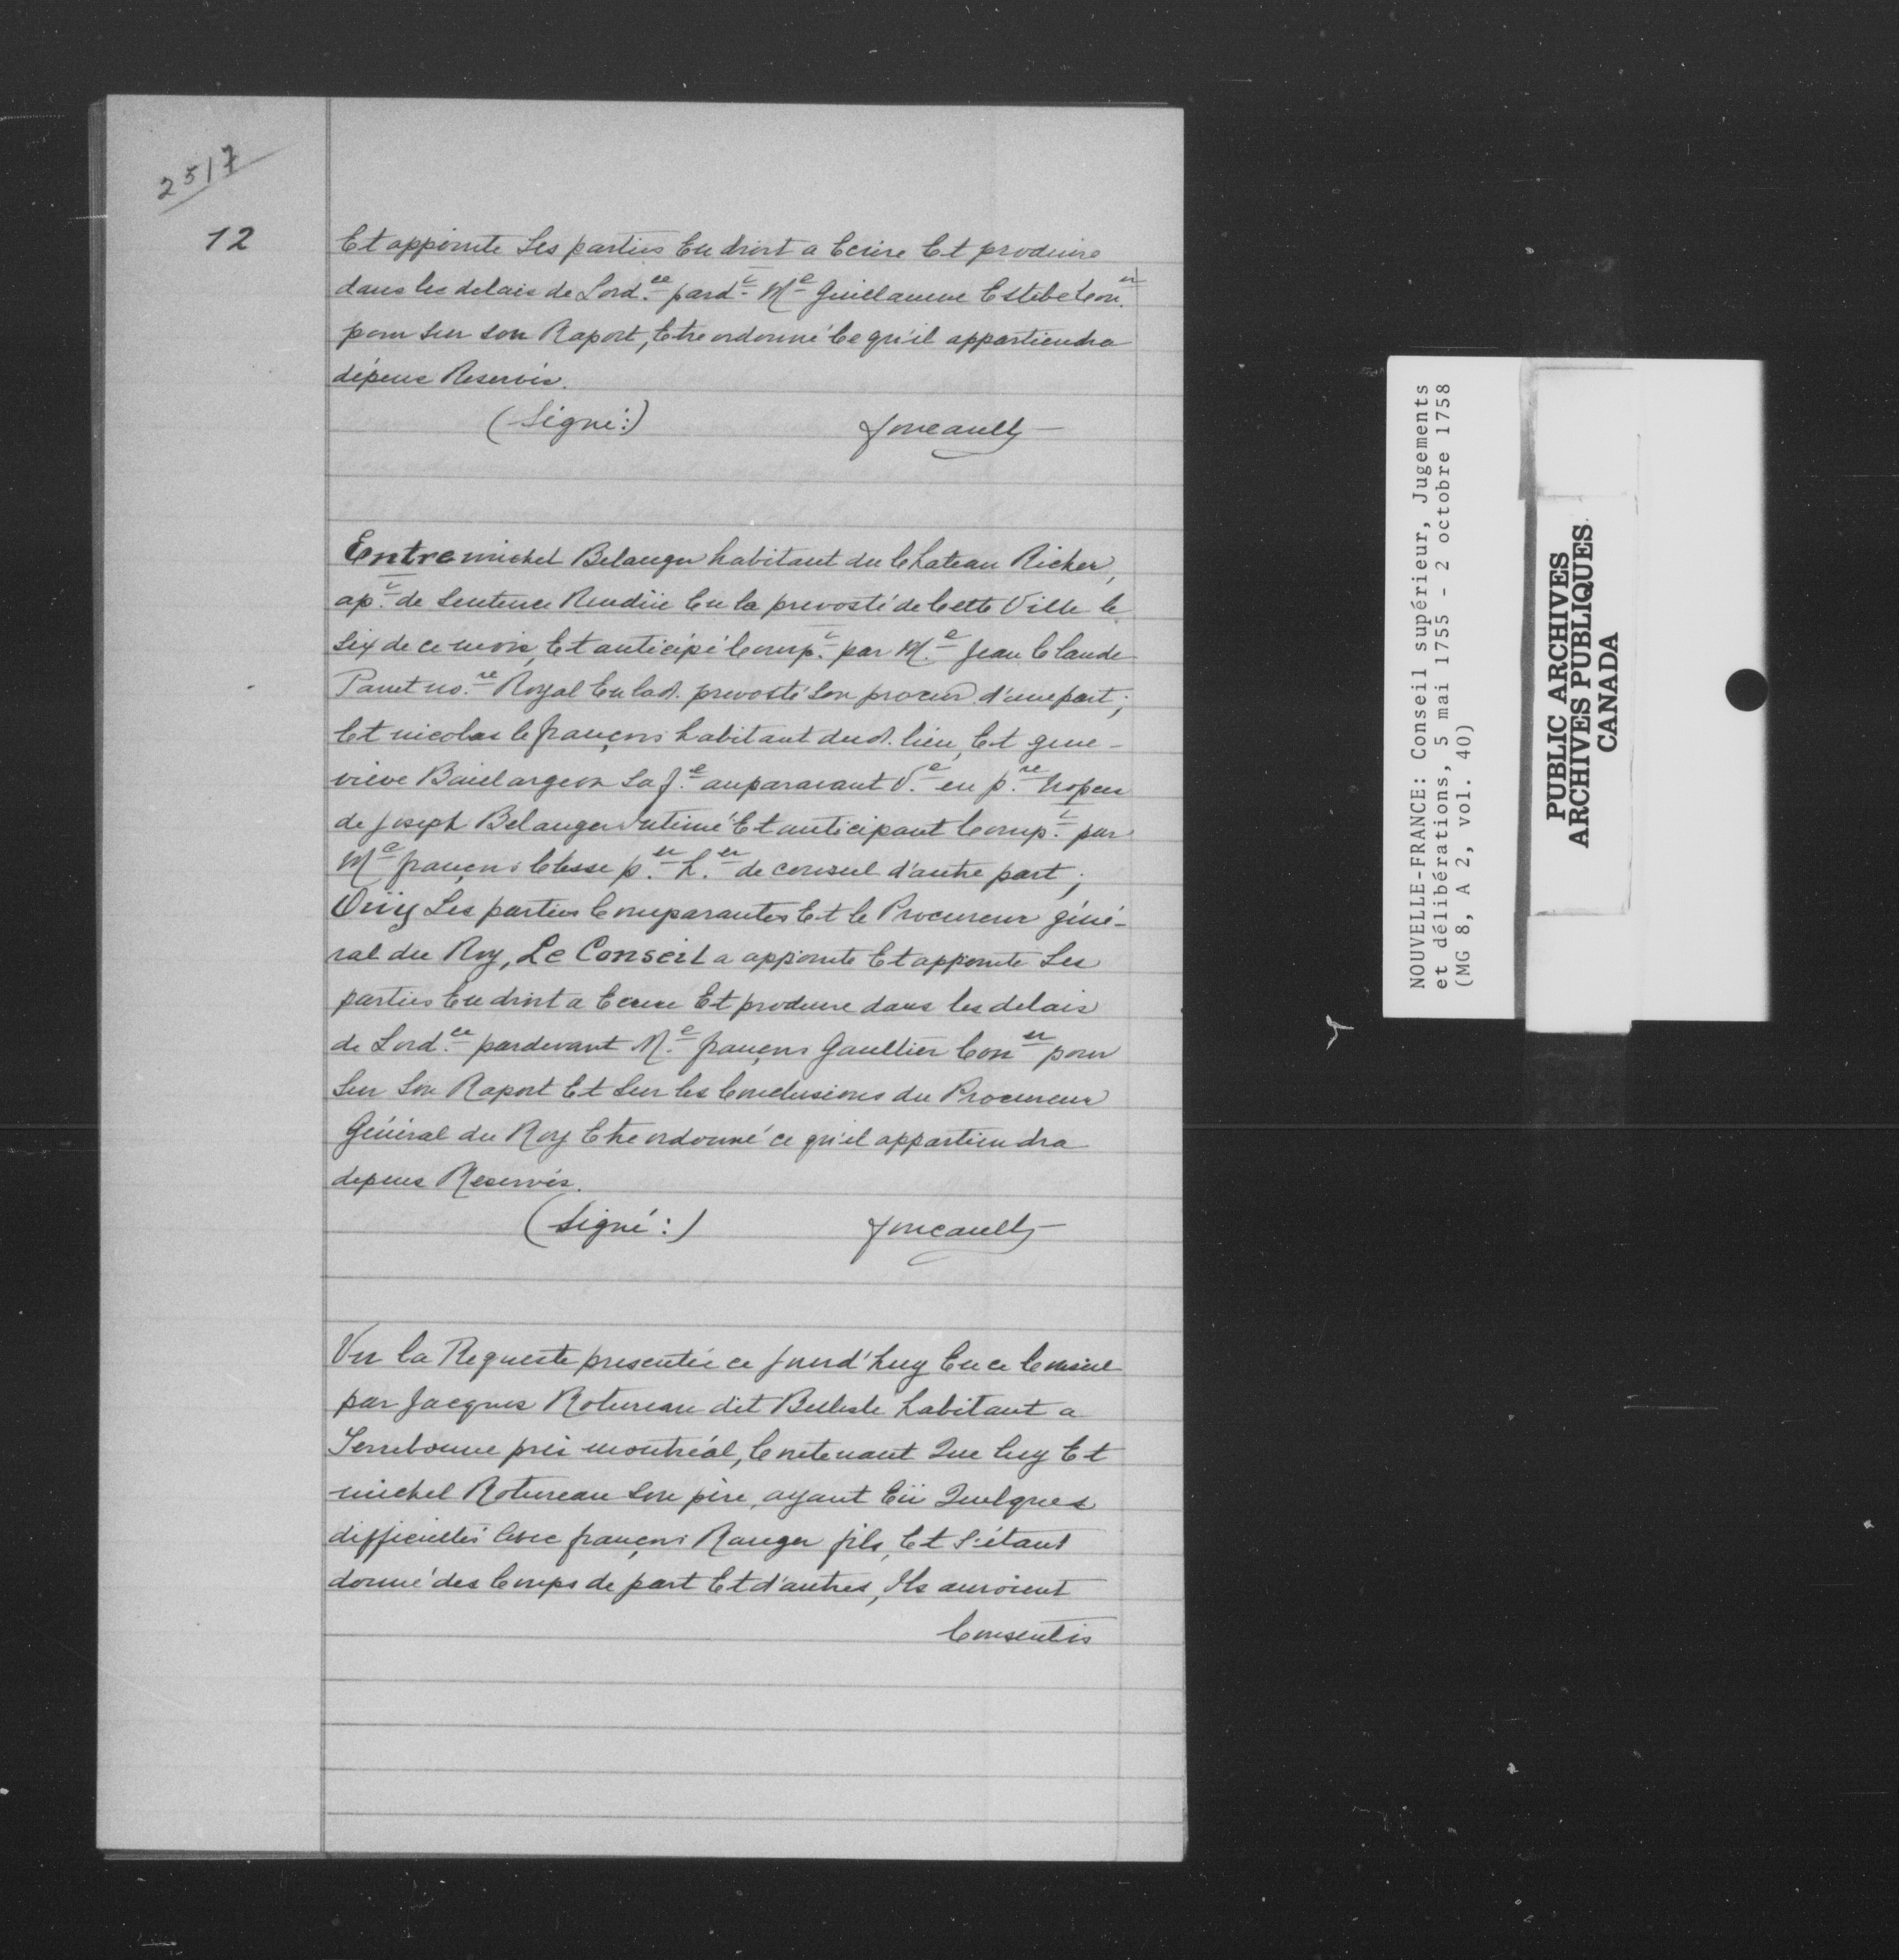 2517
12
Et appointe Les parties En droit a Ecrire Et produire
dans les delais de Lord.ce pard.t Me Guillaume Estebe Con.er
pour Sur Son Raport, Etre ordonné Ce qu'il appartiendra
dépens Reservés.
(Signé:) foucault
Entre michel Belanger habitant du Chateau Richer,
ap.t de Sentence Rendüe En la prevosté de Cette Ville le
Six de ce mois, Et anticipé Comp.t par M.e Jean Claude
Panet no.re Royal En lad. prevosté Son procur d'une part;
Et nicolas le françois habitant dud. lieu, Et gene-
viève Baielargeon Sa f.e auparavant V.e en p.re Nopces
de Joseph Belanger Intimé Et anticipant Comp.t par
Me françois Clesse p.er h.er de conseil d'autre part;
Oüiy Les parties Comparantes Et le Procureur géné-
ral du Roy, Le Conseil a appointé Et appointe Les
parties En droit a Ecrire Et produire dans les delais
de Lord.ce pardevant M.e françois Gaultier Coner pour
Sur Son Raport Et Sur les Conclusions du Procureur
Général du Roy Etre ordonné ce qu'il appartiendra
depens Reservés.
(Signé:) foucault
Vu la Requeste presentée ce jourd'huy En ce Conseil
par Jacques Rotureau dit Bellisle habitant a
Terrebonne près montréal, Contenant Que luy Et
michel Rotureau Son père, ayant Eü Quelques
difficultés avec françois Ranger fils, Et S'étant
donné des Coups de part Et d'autres, Ils auroient
Consentis
NOUVELLE-FRANCE: Conseil supérieur, Jugements
et délibérations, 5 mai 1755 - 2 octobre 1758
(MG 8, A 2, vol. 40)
PUBLIC ARCHIVES
ARCHIVES PUBLIQUES
CANADA